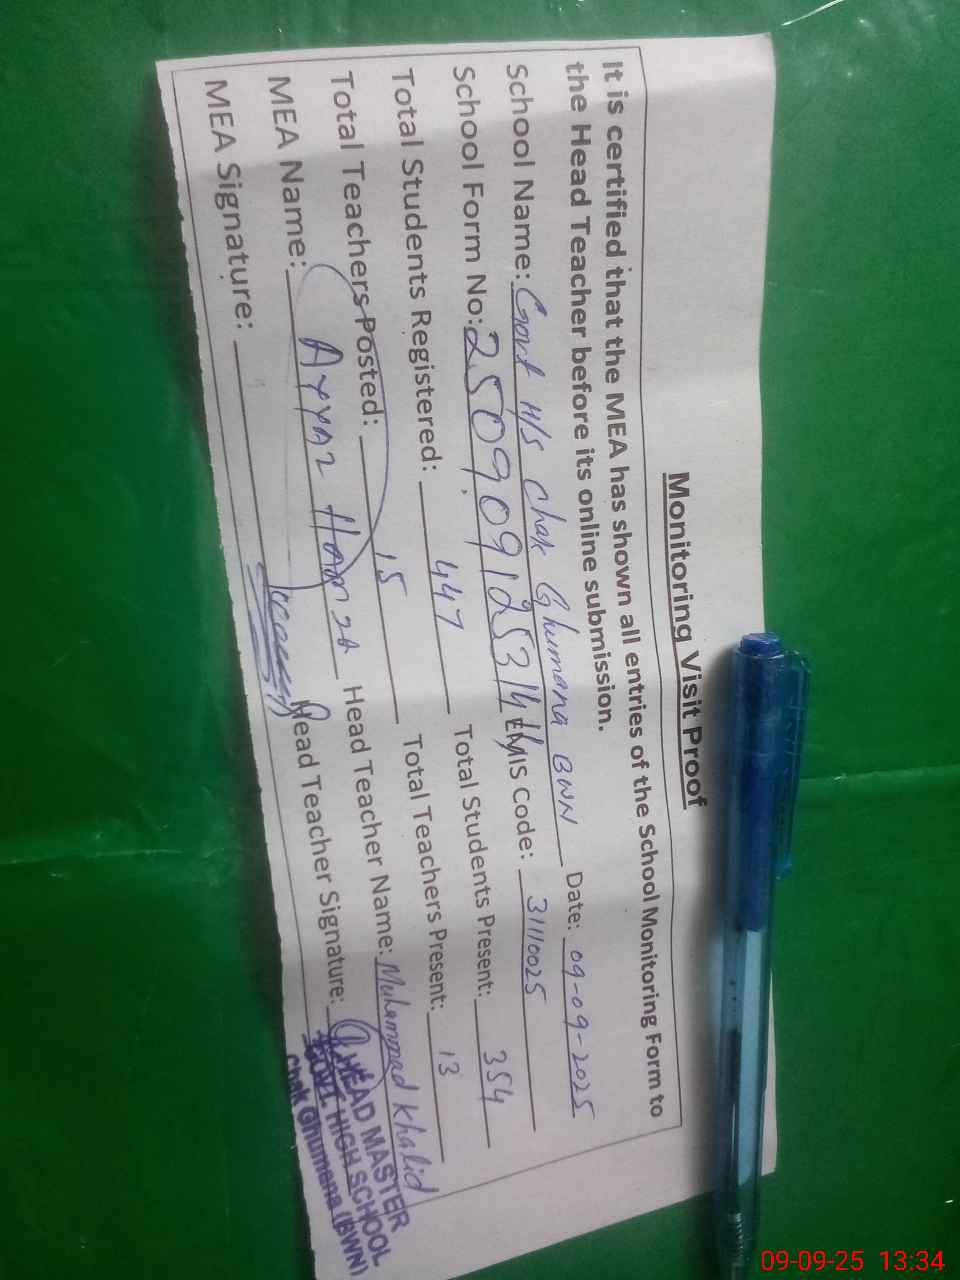 Monitoring Visit Proof
It is certified that the MEA has shown all entries of the School Monitoring Form to
the Head Teacher before its online submission.
School Name: Govt H/S Chak Ghumana BWN Date: 09-09-2025
School Form No: EMIS Code: 31110025
Total Students Registered: 447 Total Students Present: 354
Total Teachers Posted: 15 Total Teachers Present: 13
MEA Name: Head Teacher Name: Muhammad Khalid
MEA Signature: Head Teacher Signature:
HEAD MASTER
GOVT. HIGH SCHOOL
Chak Ghumana (BWN)
09-09-25 13:34